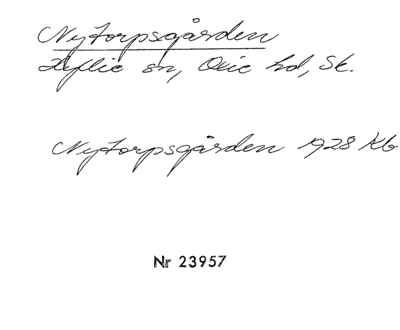 Nytorpsgården
Hyllie sn, Oxie hd, Sk.
Nytorpsgården 1928 Kb
Nr 23957